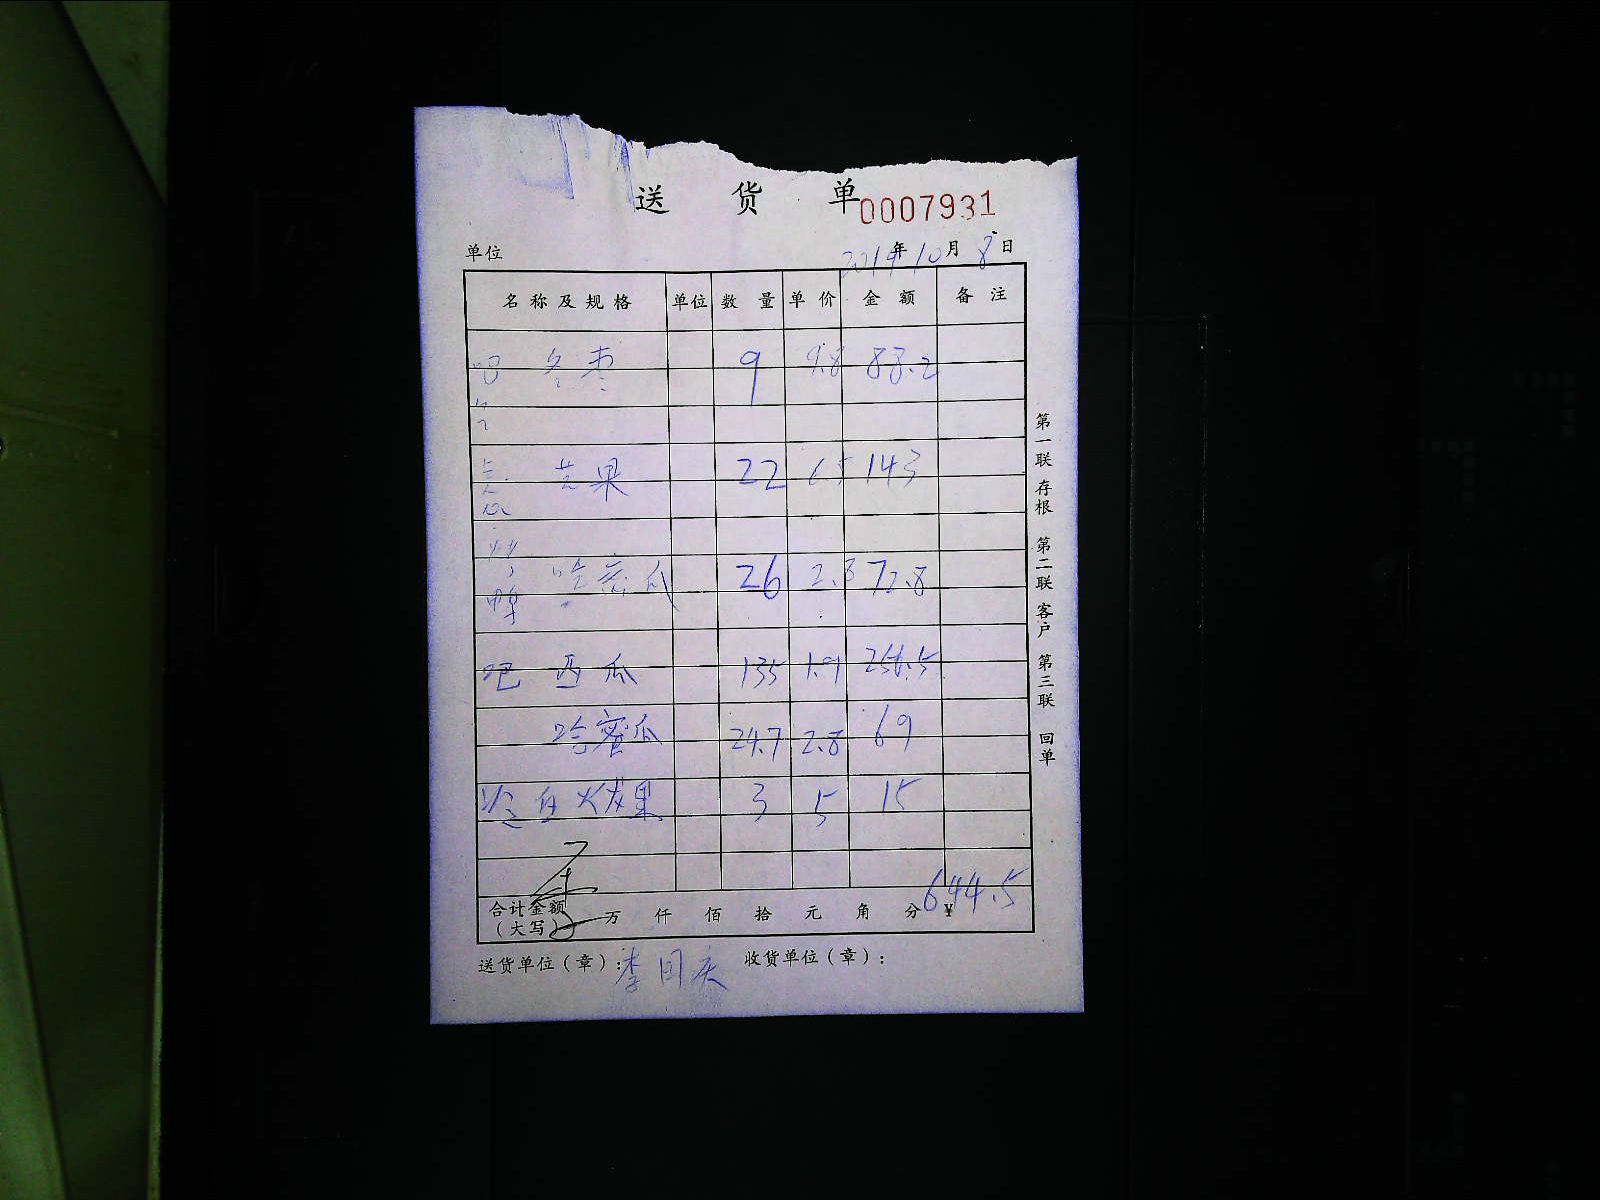 送货单 0007931
单位 2019年10月8日
名称及规格 单位 数量 单价 金额 备注
吧 冬枣 9 9.8 88.2
苹果 22 6.5 143
哈密瓜 26 2.8 72.8
吧 西瓜 135 1.9 256.5
哈蜜瓜 24.7 2.8 69
冷 白火龙果 3 5 15
合计金额（大写） 万 仟 佰 拾 元 角 分 ¥ 644.5
送货单位（章）：李国庆 收货单位（章）：
第一联 存根 第二联 客户 第三联 回单